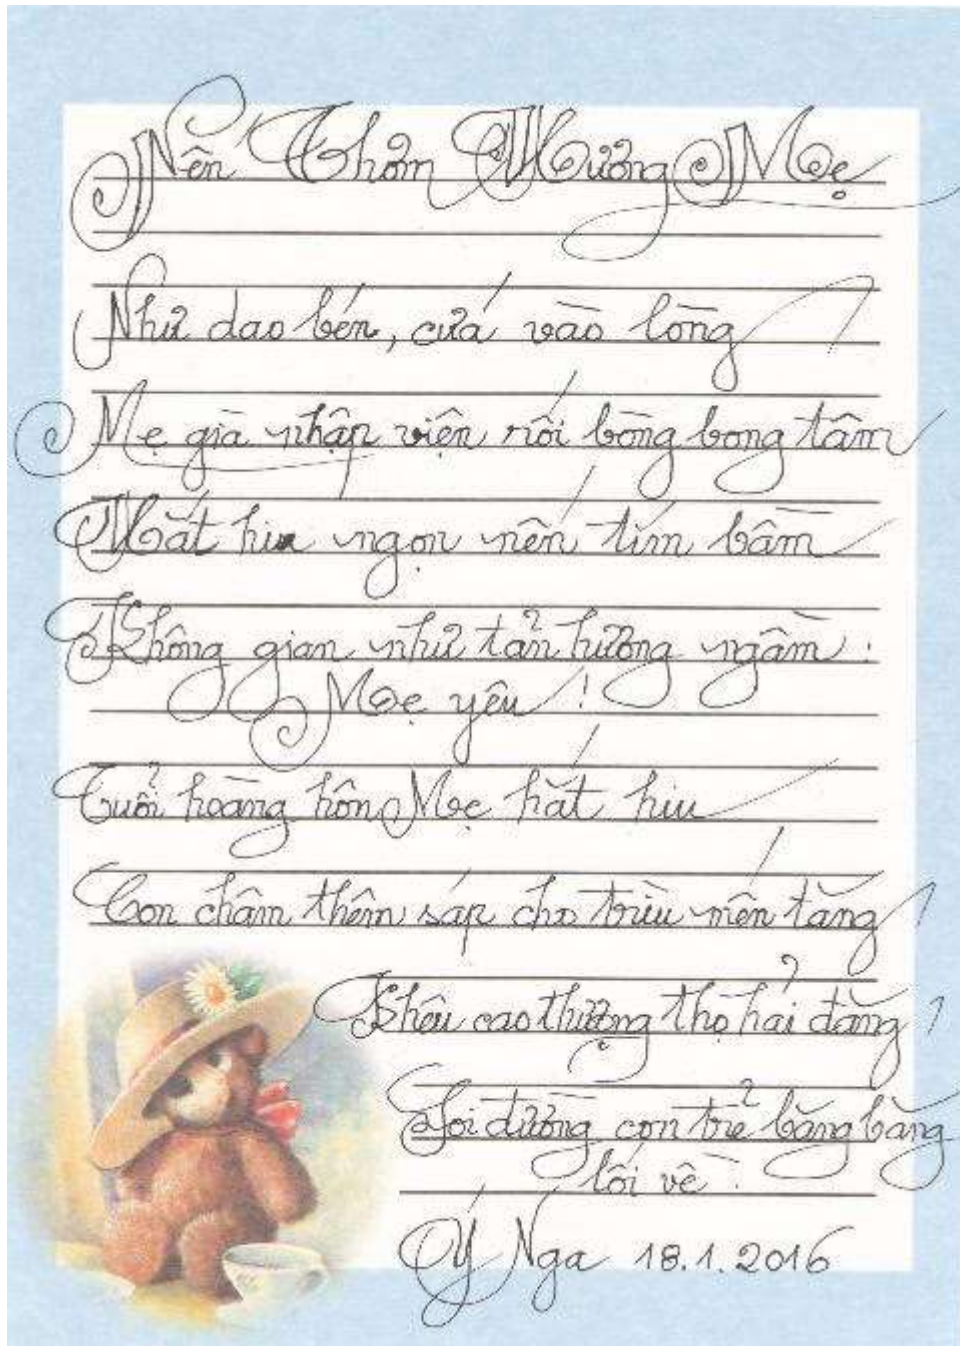 Nến Thơm Hương Mẹ
Như dao bén, cứa vào lòng
Mẹ già nhập viện rối bòng bong tâm
Mắt hiu ngọn nến tím bầm
Không gian như tản hương ngầm.
Mẹ yêu!
Tuổi hoàng hôn Mẹ hắt hiu
Con châm thêm sáp cho trìu mến tăng
Khêu cao thượng thọ hải đăng
Soi đường con trẻ băng băng
lối về.
Ý Nga 18.1.2016